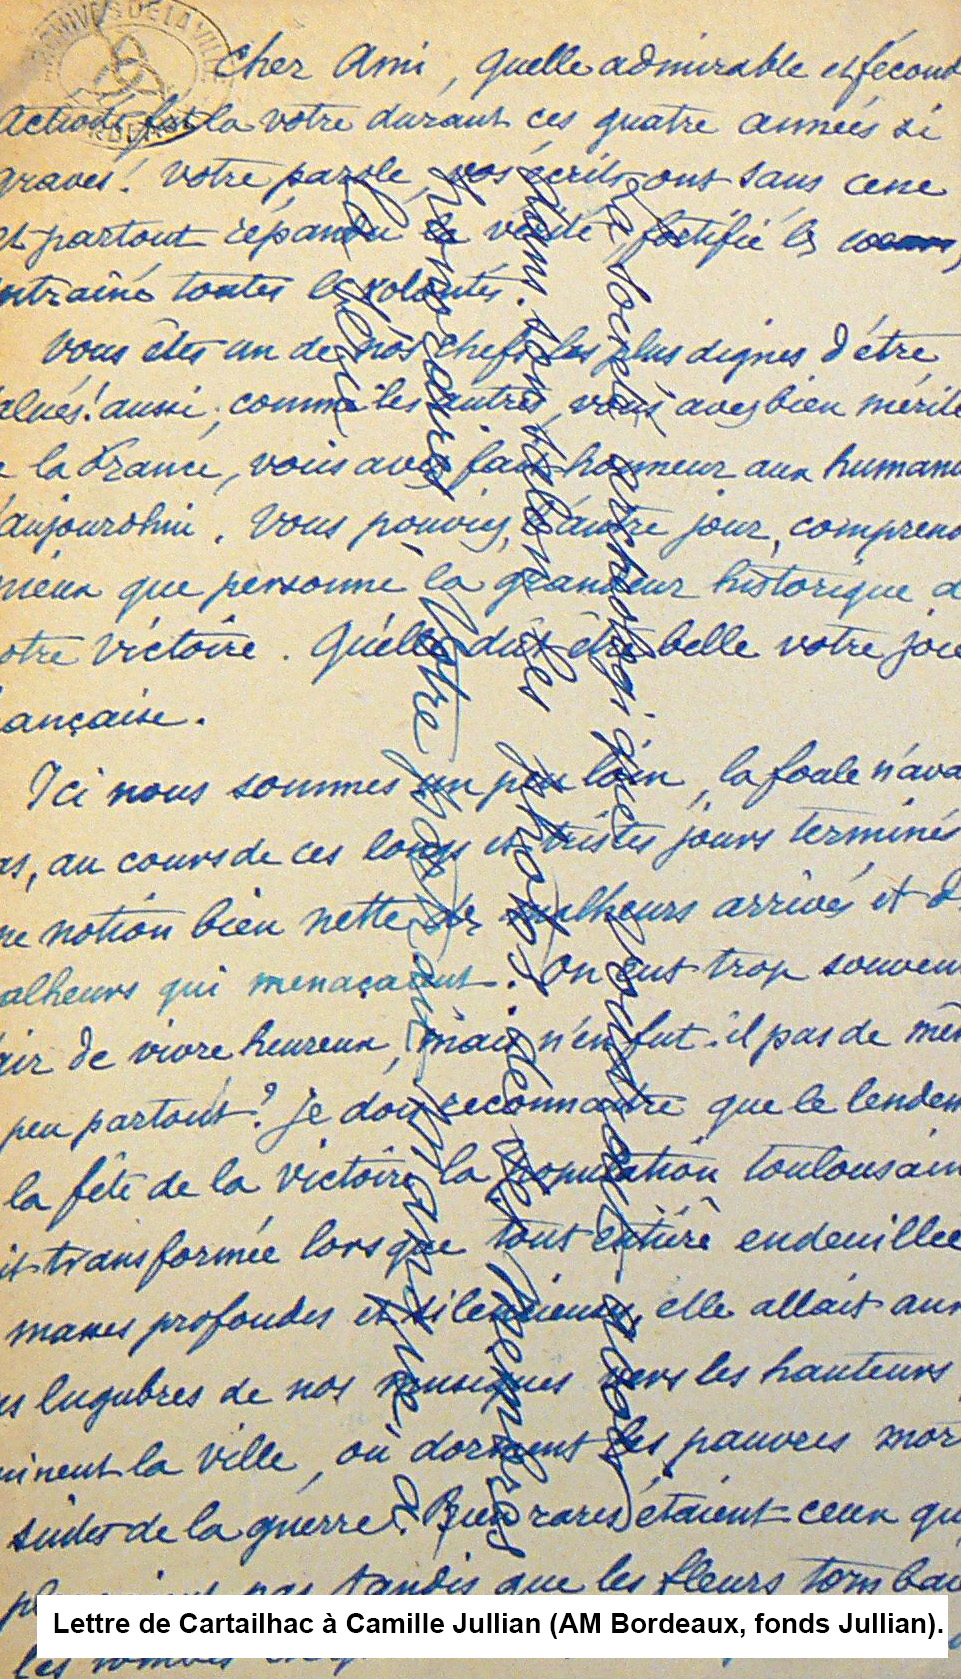 ARCHIVES DE LA VILLE
Cher Ami, quelle admirable et fécond
activité fut la votre durant ces quatre années si
graves! Votre parole, vos écrits ont sans cesse
et partout répandu la vérité, fortifié les coeurs,
entrainé toutes les volontés.
Vous êtes un de nos chefs les plus dignes d'être
alués! aussi, comme les autres, vous avez bien mérité
e la France, vous avez fait honneur aux humani
'aujourdhui. Vous pouviez, l'autre jour, comprend
mieux que personne la grandeur historique d
otre victoire. Qu'elle dut être belle votre joie
rançaise.
Ici nous sommes un peu loin, la foule n'ava
as, au cours de ces longs et tristes jours terminés
ne notion bien nette des malheurs arrivés et d
alheurs qui menaçaient. On eut trop souvent
air de vivre heureux, mais n'en fut-il pas de mêm
peu partout? je dois reconnaitre que le lendem
la fête de la victoire la population toulousain
it transformée lorsque tout entière endeuillée
masses profondes et silencieuses, elle allait aux
ns lugubres de nos musiques vers les hauteurs
minent la ville, où dorment les pauvres mor
suites de la guerre. Bien rares étaient ceux qui
pas tandis que les fleurs tombai
les tombes
La société archéologique
dans son salon les photos de ses membres
honoraires. Votre
Lettre de Cartailhac à Camille Jullian (AM Bordeaux, fonds Jullian).